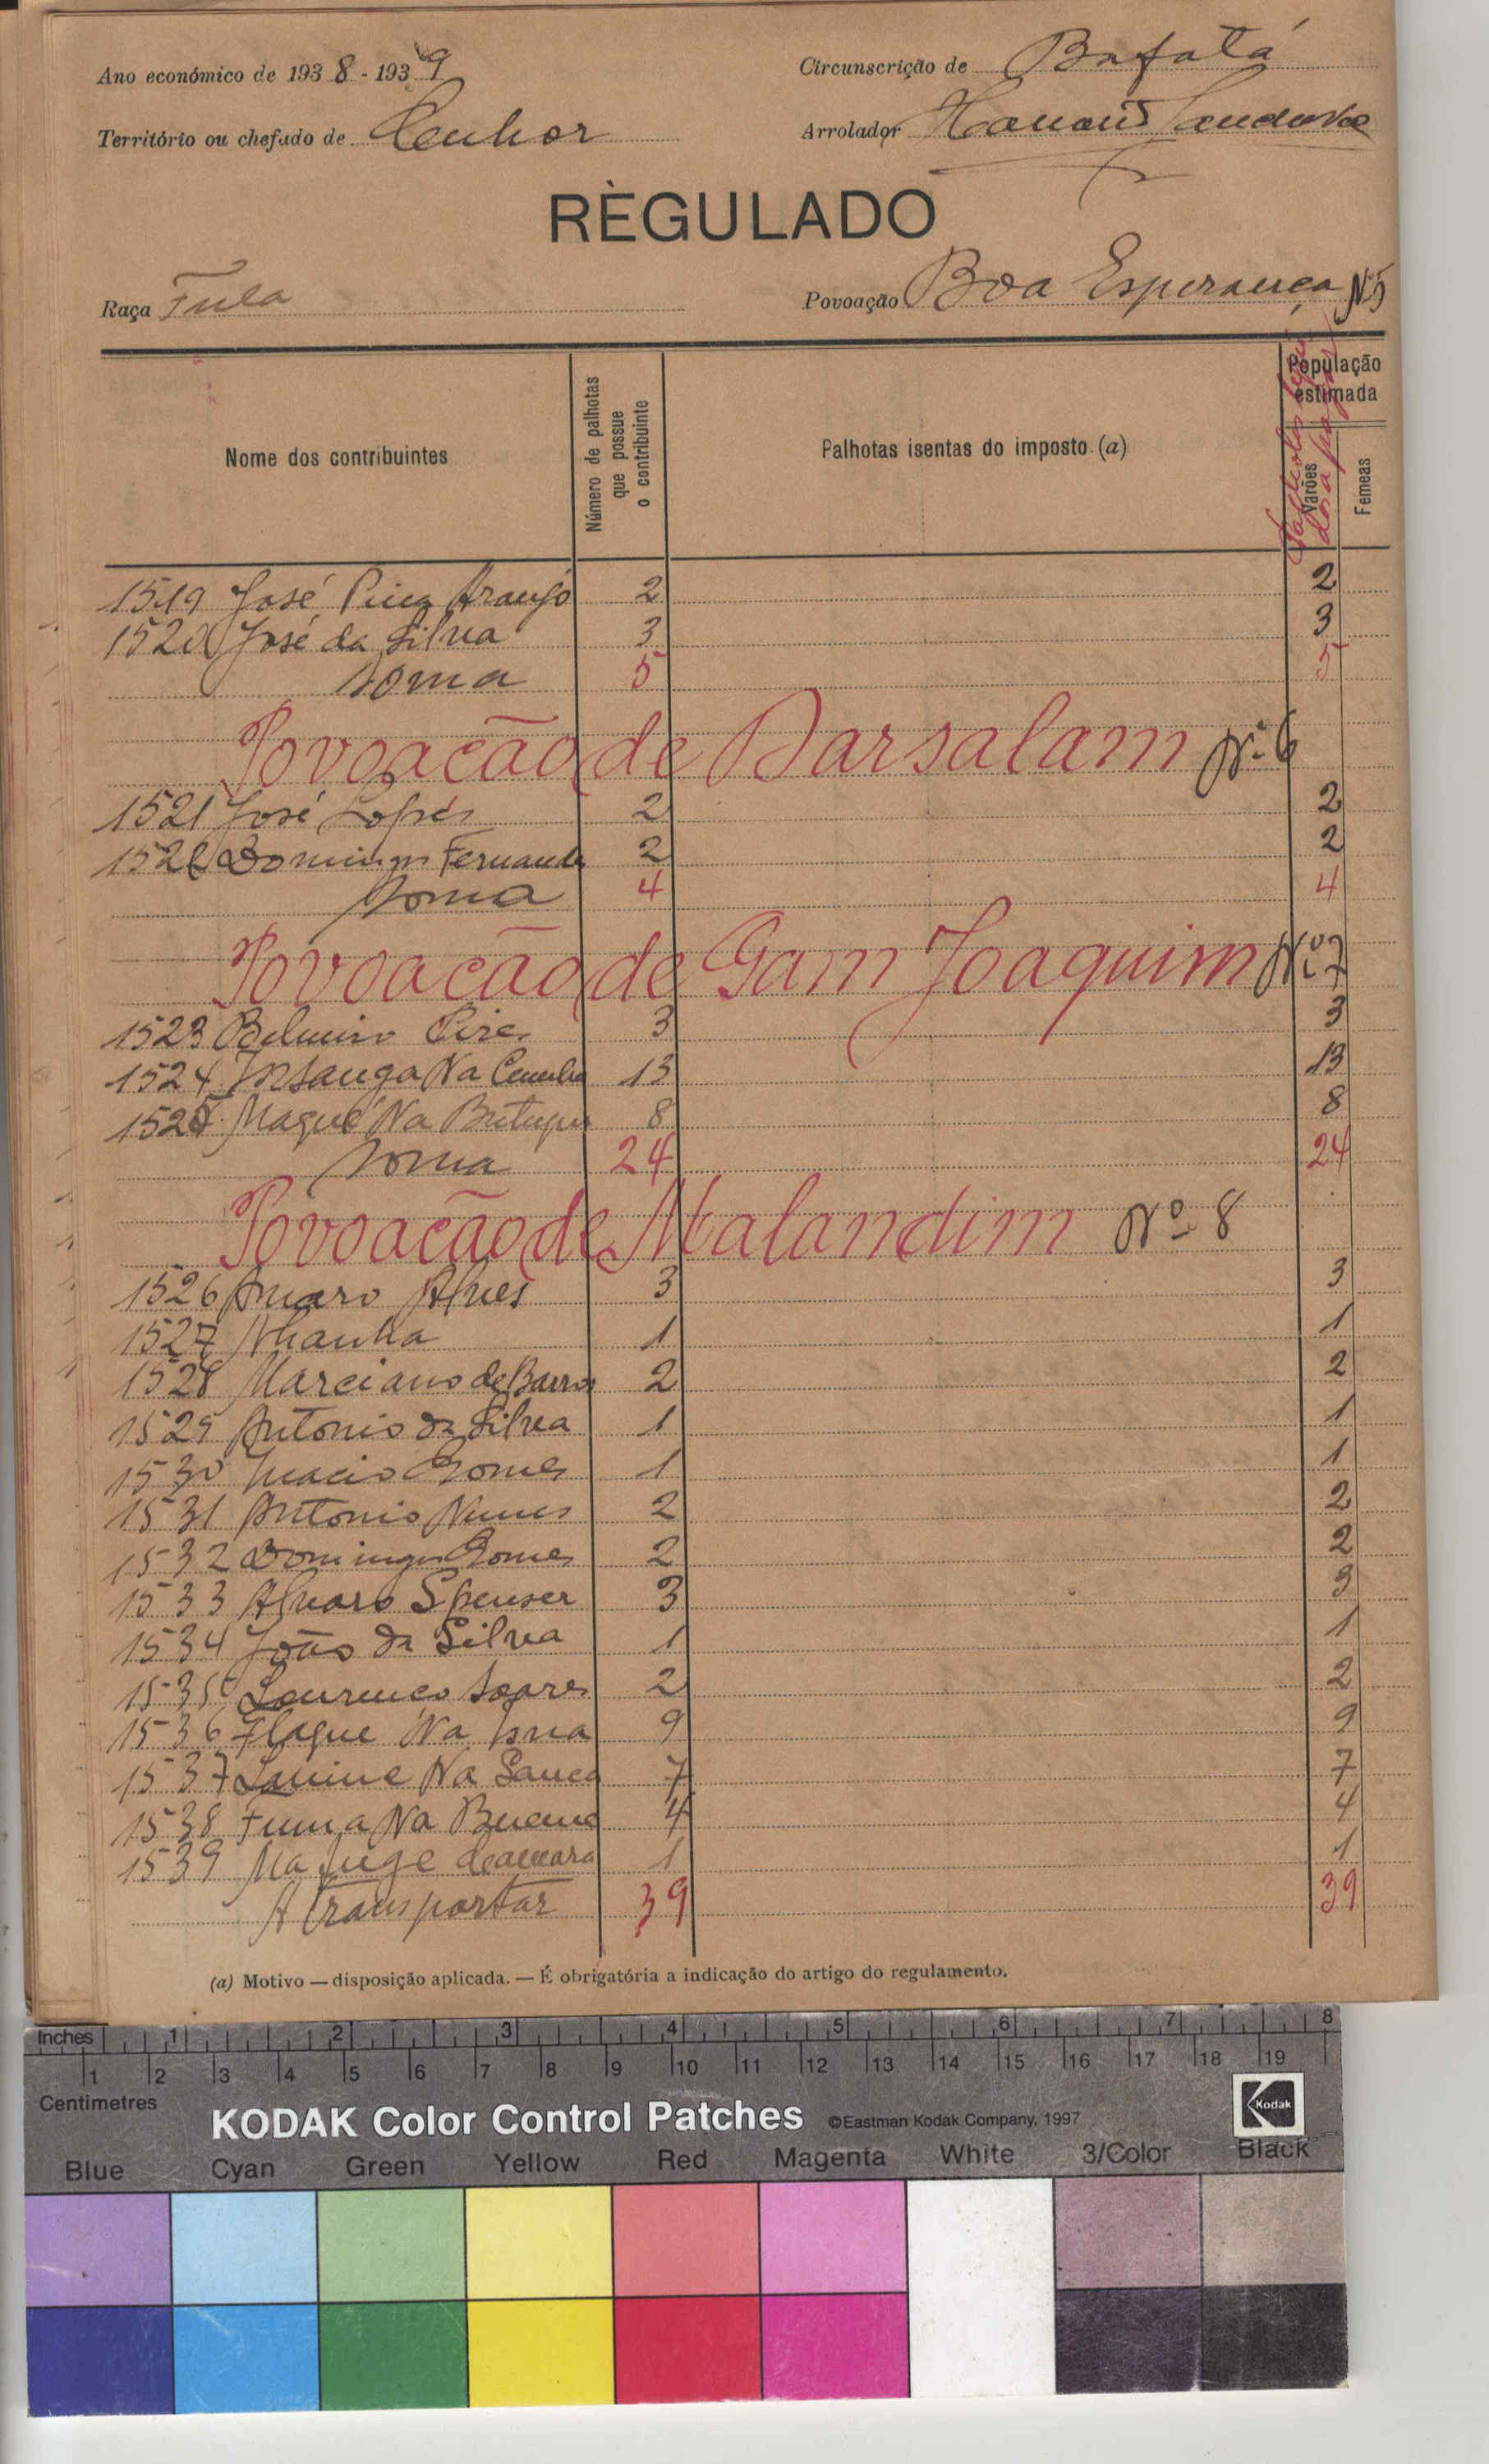 Ano económico de 1938-1939
Circunscrição de Bafatá
Território ou chefado de Cenhor
Arrolador
RÈGULADO
Raça Fula
Povoação Boa Esperança Nº5
Nome dos contribuintes
Número de palhotas que possue o contribuinte
Palhotas isentas do imposto (a)
População estimada
Varões
Femeas
1519 José Araujo 2 2
1520 José da Silva 3 3
Soma 5 5
Povoacão de Darsalam Nº 6
1521 José Lopes 2 2
1522 Domingos Fernandes 2 2
Soma 4 4
Povoacão de Gam Joaquim Nº 7
1523 Belmiro Pires 3 3
1524 Insanga Na 13 13
1525 Maqué Na 8 8
Soma 24 24
Povoacão de Malandim Nº 8
1526 Amaro Alves 3 3
1527 Nhanha 1 1
1528 Marciano de Barros 2 2
1529 Antonio da Silva 1 1
1530 Inacio Gomes 1 1
1531 Antonio Nunes 2 2
1532 Domingos Gomes 2 2
1533 Alvaro Spenser 3 3
1534 João da Silva 1 1
1535 Lourenço Soares 2 2
1536 Flaque Na 9 9
1537 Na 7 7
1538 Na 4 4
1539 1 1
A transportar 39 39
(a) Motivo — disposição aplicada. — É obrigatória a indicação do artigo do regulamento.
Inches 1 2 3 4 5 6 7 8
1 2 3 4 5 6 7 8 9 10 11 12 13 14 15 16 17 18 19
Centimetres
KODAK Color Control Patches ©Eastman Kodak Company, 1997 Kodak
Blue Cyan Green Yellow Red Magenta White 3/Color Black